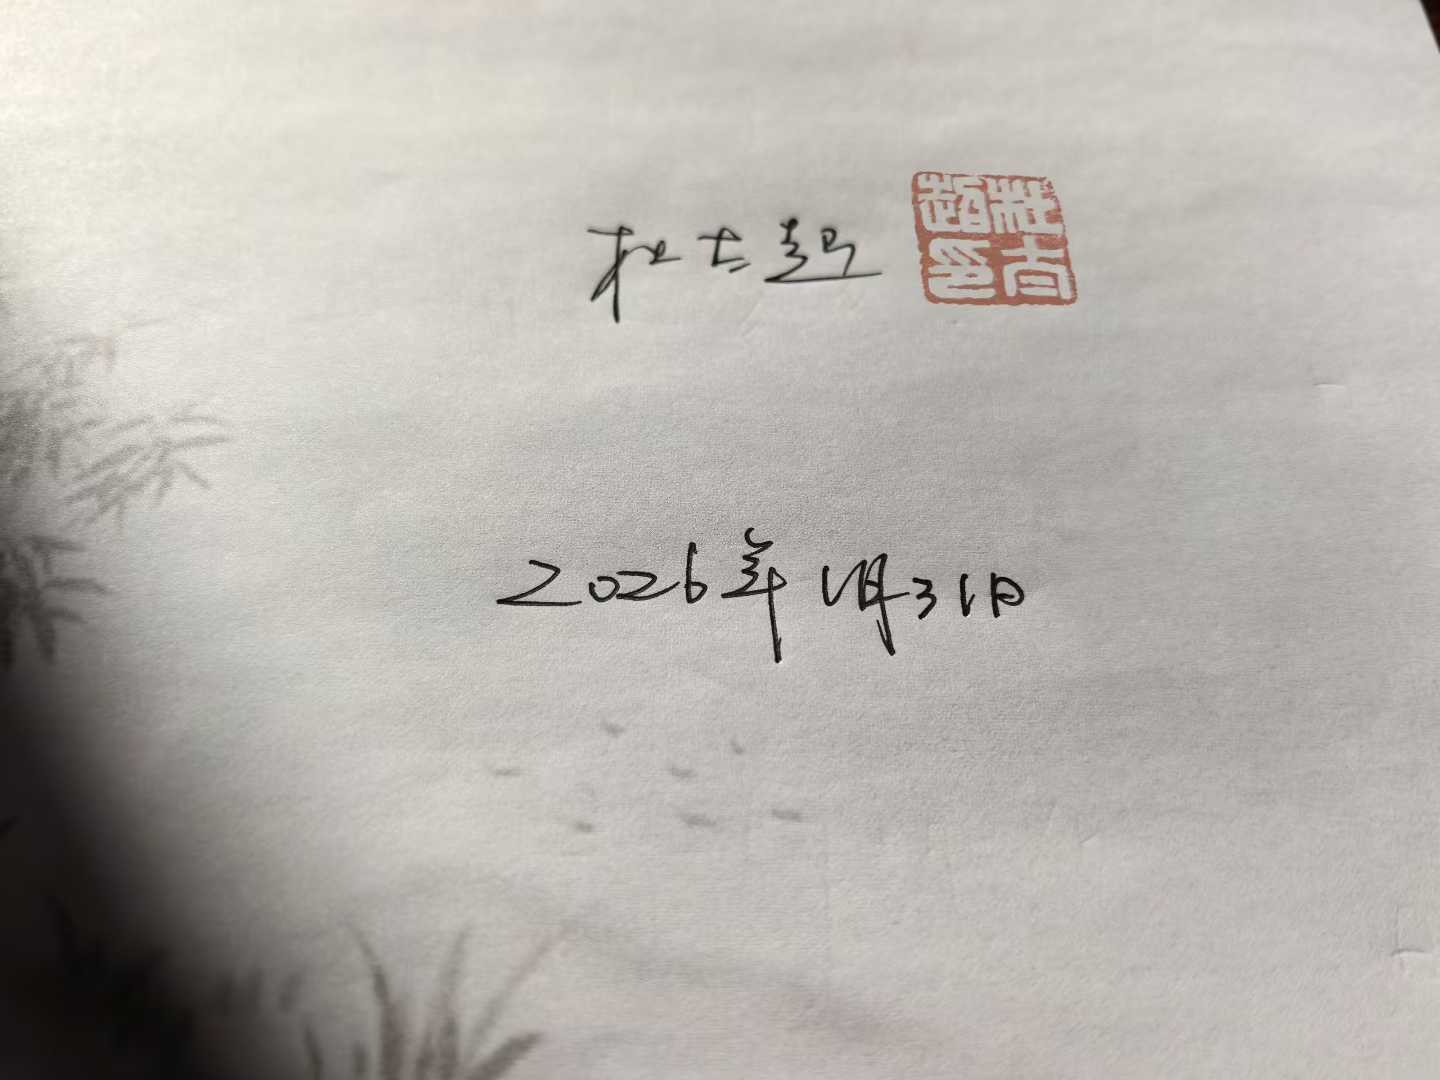 杜太超
超杜
印太
2026年1月31日